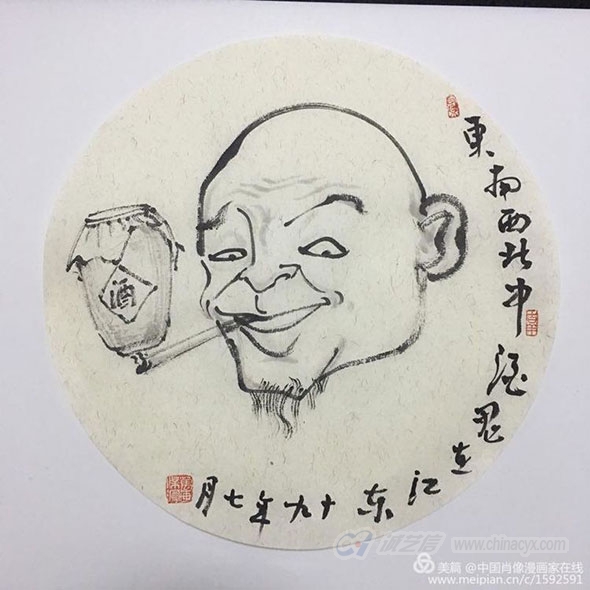 酒
東南西北中
酒鬼在江东
十九年七月
诚艺信
www.chinacyx.com
美篇 @中国肖像漫画家在线
www.meipian.cn/c/1592591